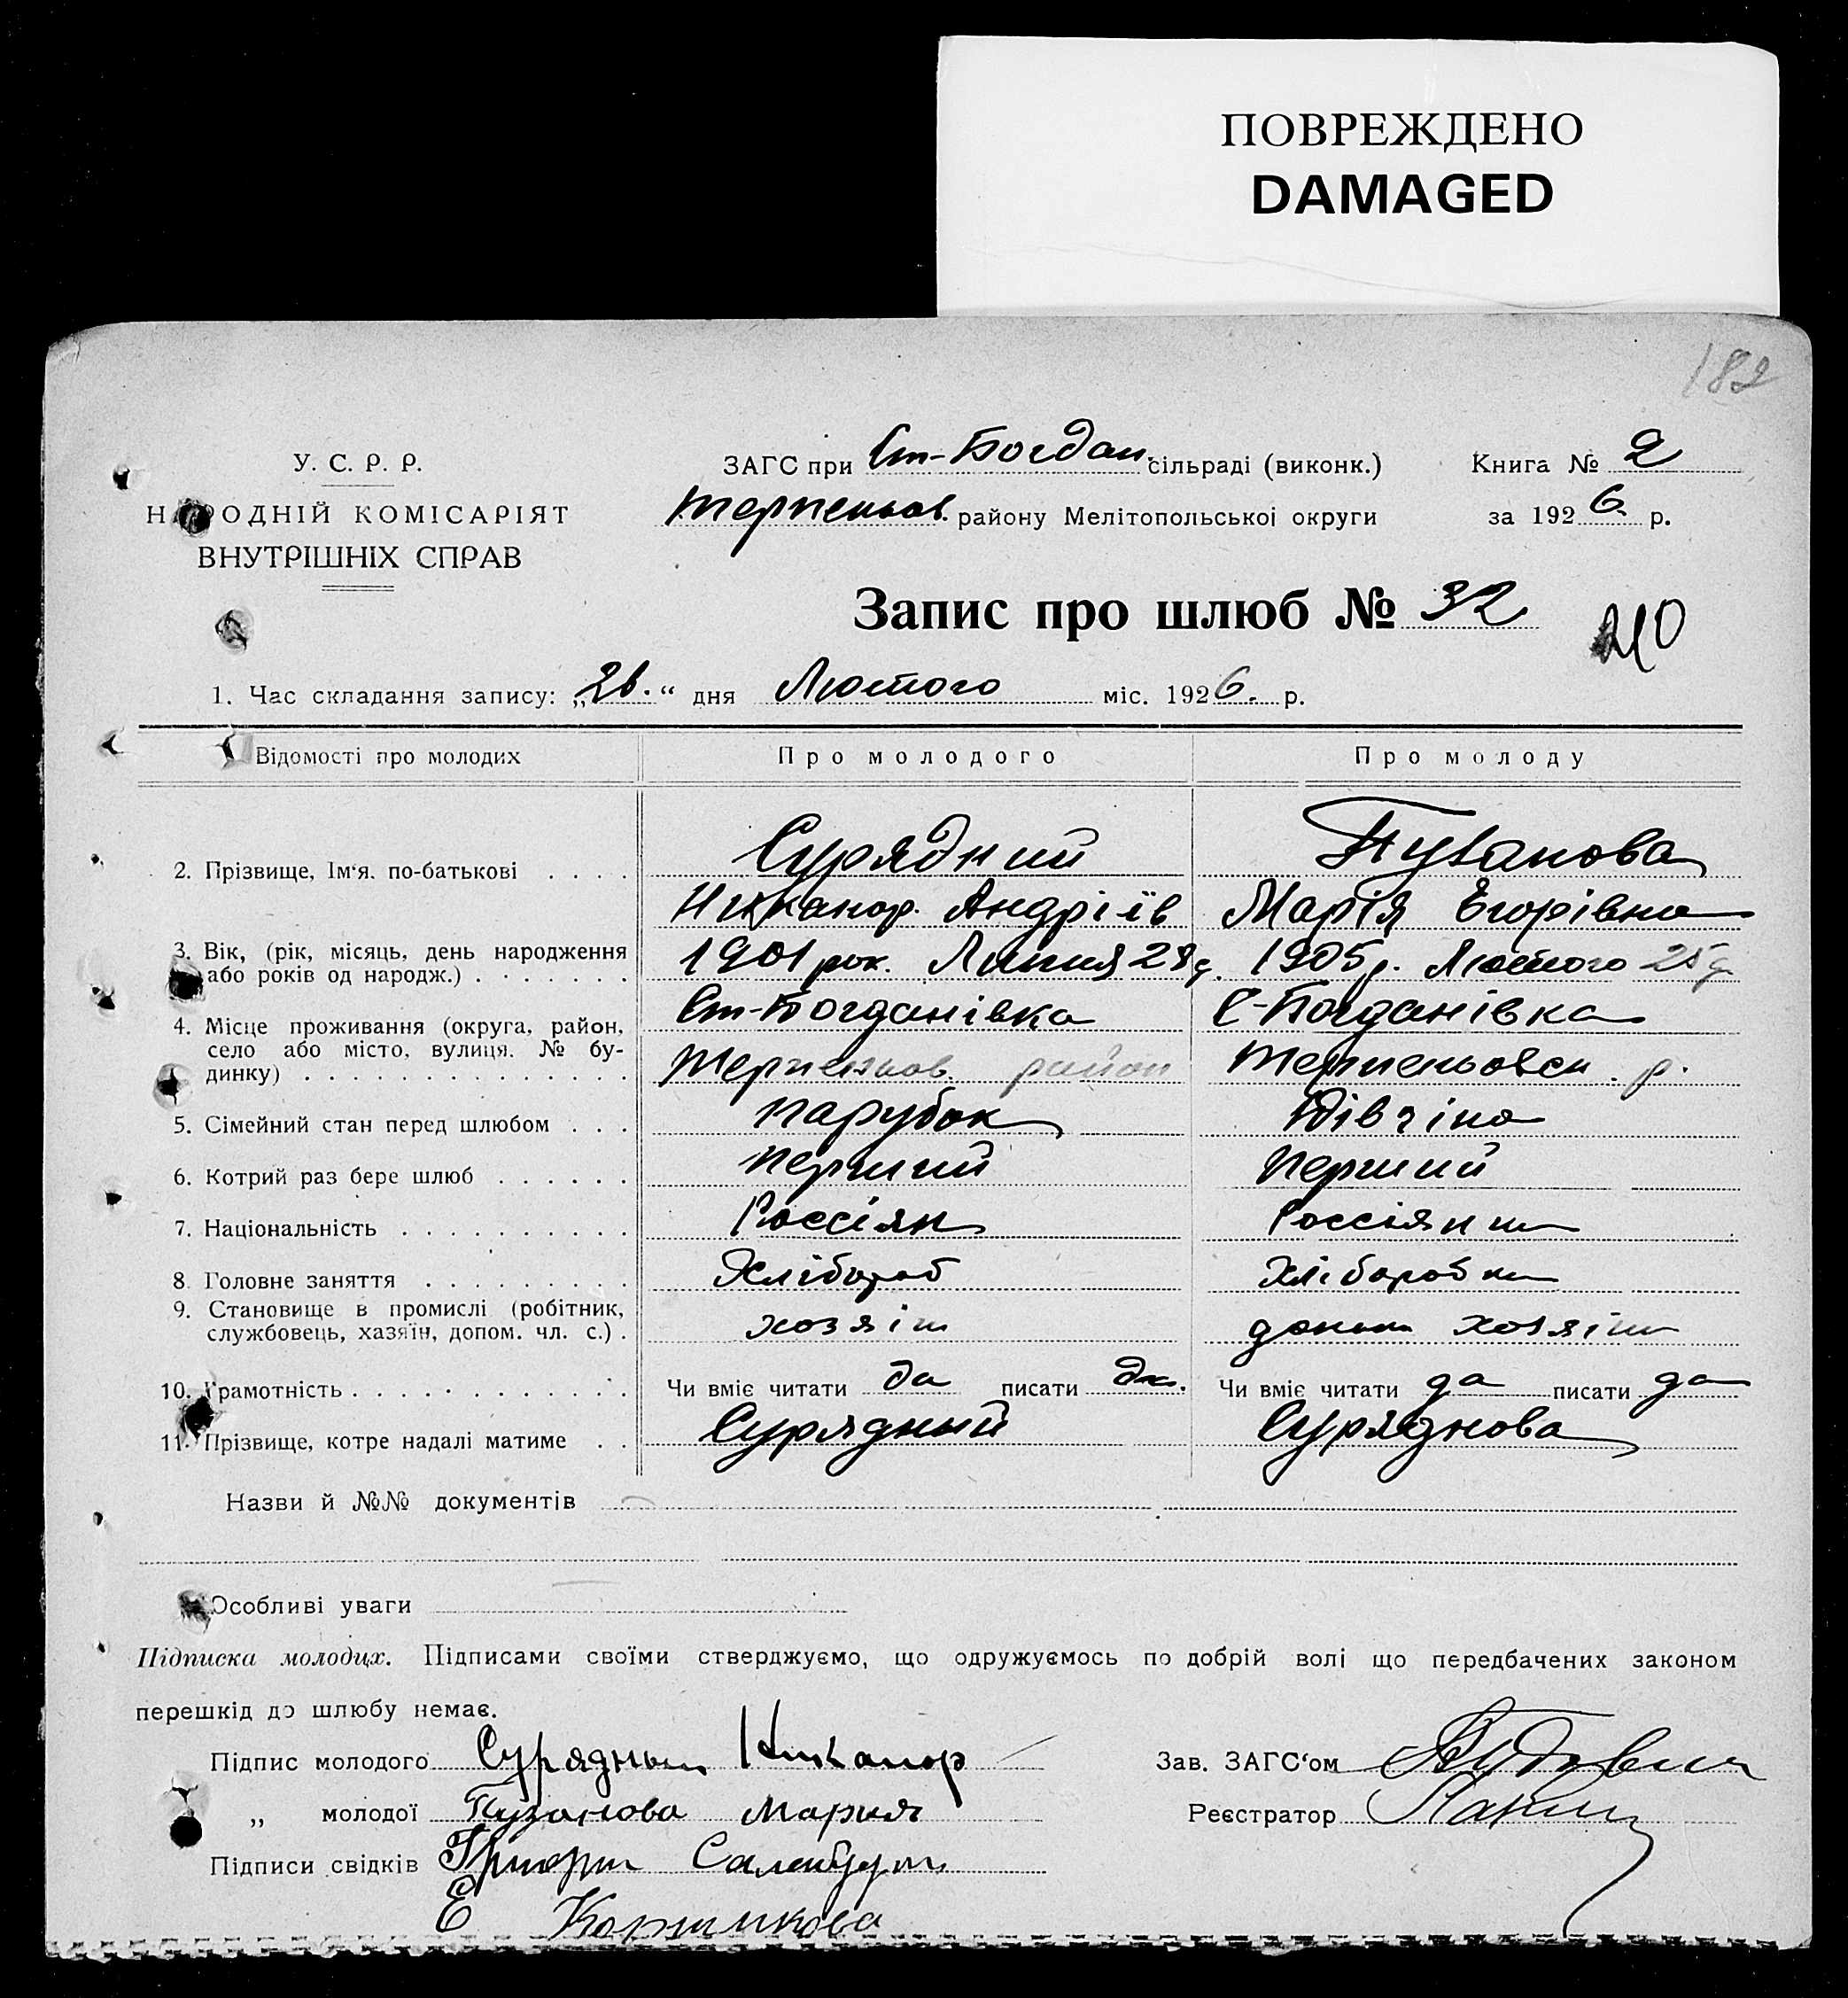 ПОВРЕЖДЕНО
DAMAGED
182
У. С. Р. Р.
НАРОДНІЙ КОМІСАРІЯТ
ВНУТРІШНІХ СПРАВ
ЗАГС при Ст-Богдан. сільраді (виконк.)
Терпеньов. району Мелітопольської округи
Книга № 2
за 1926 р.
Запис про шлюб № 32
210
1. Час складання запису: „26.“ дня Лютого міс. 1926. р.
Відомості про молодих Про молодого Про молоду
2. Прізвище, Ім'я. по-батькові . . . . Сурядний Пузанова
Никанор. Андріїв Марія Егорівна
3. Вік, (рік, місяць, день народження
або років од народж.) . . . . . . 1901 рок. Липня 28 д. 1905 р. Лютого 25 д.
4. Місце проживання (округа, район,
село або місто, вулиця. № бу-
динку) . . . . . . . . . . . . . .
Ст-Богданівка С-Богданівка
Терпеньов. район Терпеньовск. р.
5. Сімейний стан перед шлюбом . . . парубок Дівчіна
6. Котрий раз бере шлюб . . . . . . перший перший
7. Національність . . . . . . . . . . Россіян Россіянка
8. Головне заняття . . . . . . . . . Хлібороб Хліборобка
9. Становище в промислі (робітник,
службовець, хазяїн, допом. чл. с.) . хозяін хозяіна
10. Грамотність . . . . . . . . . . . . Чи вміє читати да писати да. Чи вміє читати да писати да
11. Прізвище, котре надалі матиме . . Сурядный Суряднова
Назви й №№ документів
Особливі уваги
Підписка молодих. Підписами своїми стверджуємо, що одружуємось по добрій волі що передбачених законом
перешкід до шлюбу немає.
Підпис молодого Сурядный Никанор
„ молодої Пузанова Мария
Підписи свідків
Е
Зав. ЗАГС'ом
Реєстратор